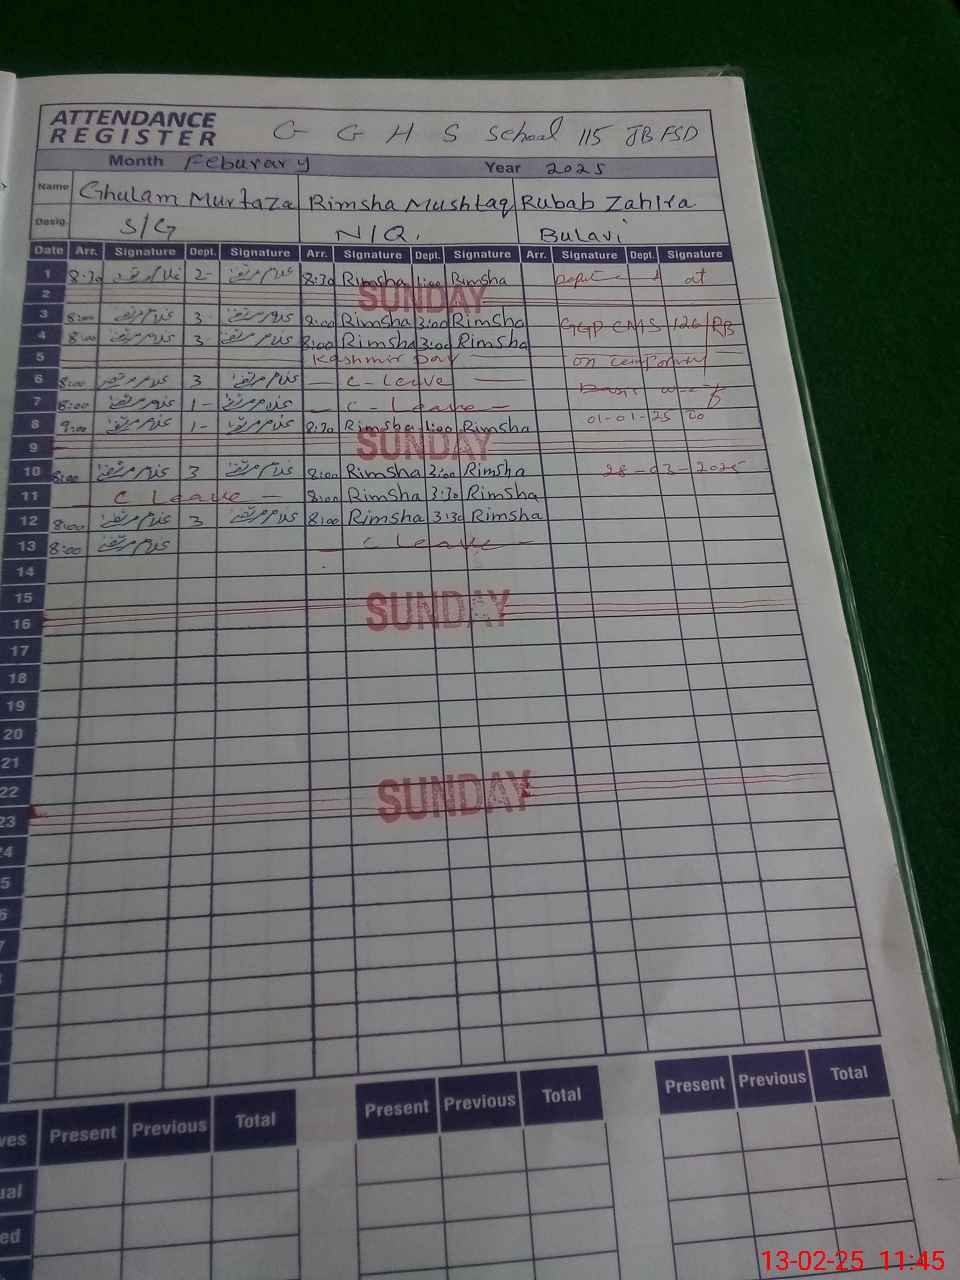 ATTENDANCE REGISTER G G H S School 115 JB FSD
Month Feburary Year 2025
Name Ghulam Murtaza Rimsha Mushtaq Rubab Zahra
Desig. S/G N/Q. Bulavi
Date Arr. Signature Dept. Signature Arr. Signature Dept. Signature Arr. Signature Dept. Signature
1 8:30 غلام مرتضیٰ 2- غلام مرتضیٰ 8:30 Rimsha 1:00 Rimsha at
2 SUNDAY
3 8:00 غلام مرتضیٰ 3 غلام مرتضیٰ 8:00 Rimsha 3:00 Rimsha GGP CMS 126/RB
4 8:00 غلام مرتضیٰ 3 غلام مرتضیٰ 8:00 Rimsha 3:00 Rimsha
5 Kashmir Day on
6 8:00 غلام مرتضیٰ 3 غلام مرتضیٰ - C-Leave -
7 8:00 غلام مرتضیٰ 1- غلام مرتضیٰ - C-Leave -
8 9:00 غلام مرتضیٰ 1- غلام مرتضیٰ 8:30 Rimsha 1:00 Rimsha 01-01-25 to
9 SUNDAY
10 8:00 غلام مرتضیٰ 3 غلام مرتضیٰ 8:00 Rimsha 3:00 Rimsha 28-03-2025
11 - C Leave - 8:00 Rimsha 3:30 Rimsha
12 8:00 غلام مرتضیٰ 3 غلام مرتضیٰ 8:00 Rimsha 3:30 Rimsha
13 8:00 غلام مرتضیٰ - C Leave -
14
15
SUNDAY
16
17
18
19
20
21
22
SUNDAY
23
Present Previous Total Present Previous Total Present Previous Total
13-02-25 11:45